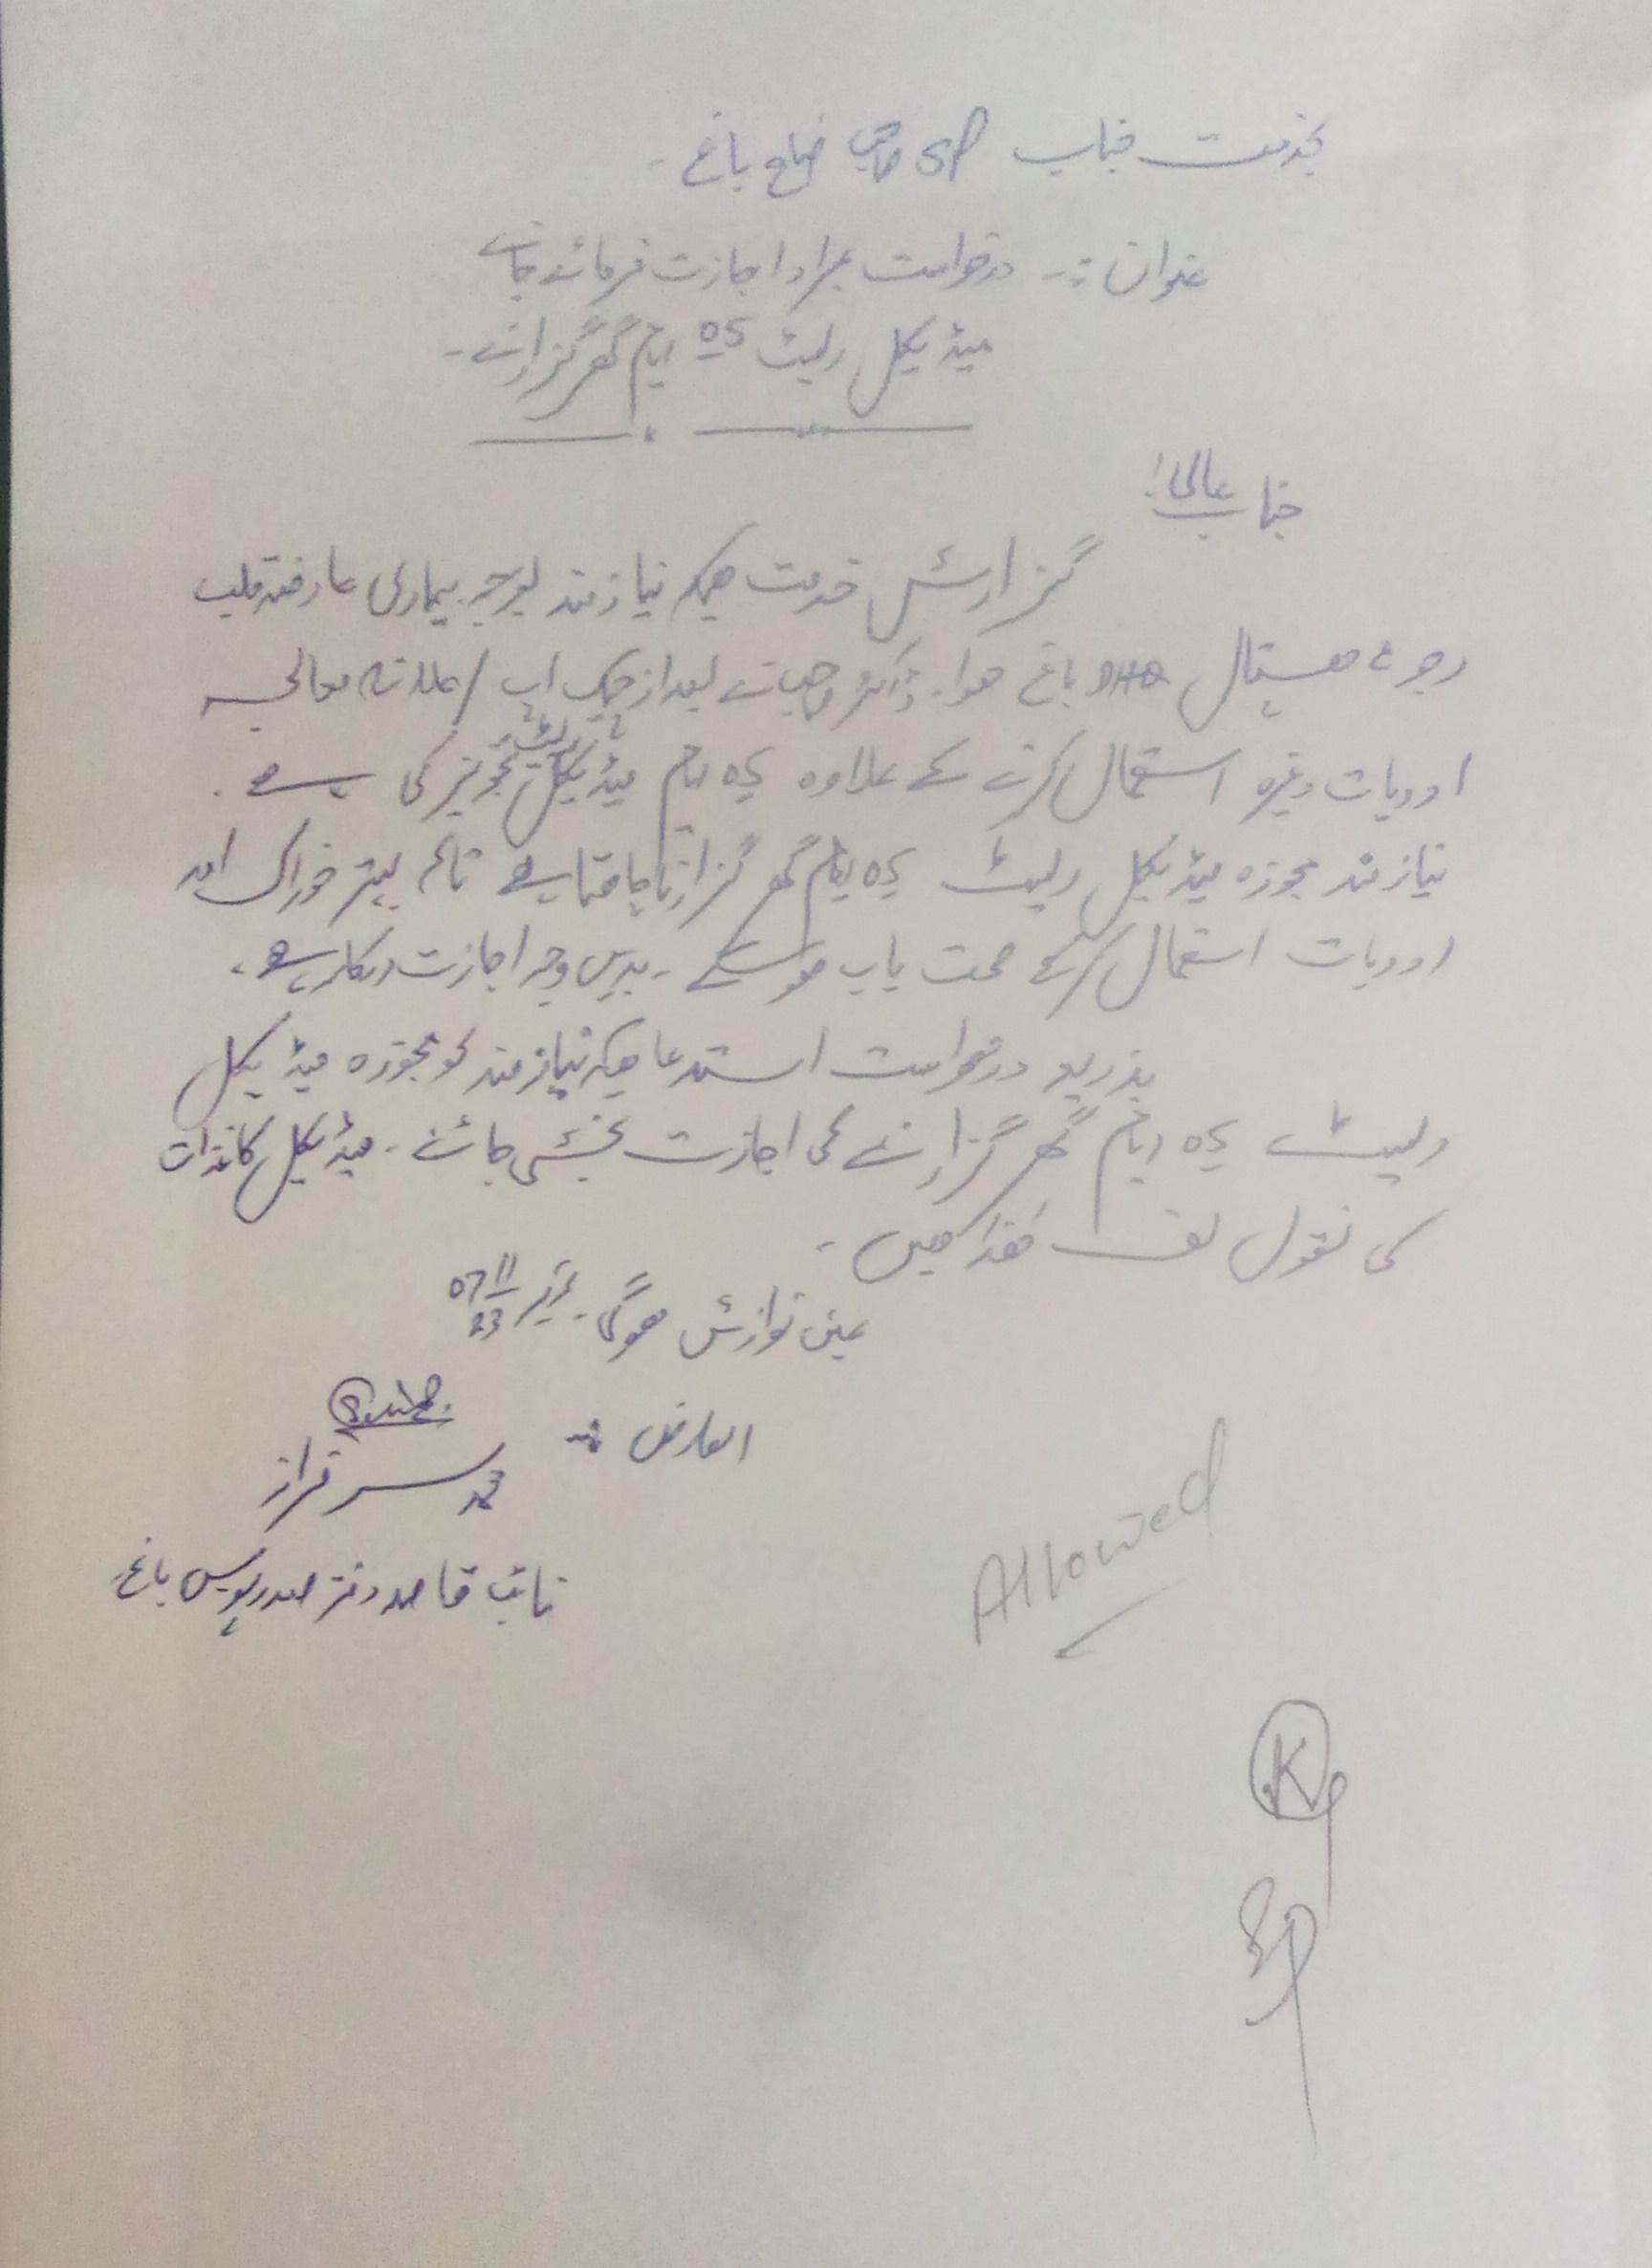 بخدمت جناب SP صاحب ضلع باغ ۔
عنوان :۔ درخواست بمراد اجازت فرمائے جانے
میڈیکل ریسٹ 05 ایام گھر گزارنے ۔
جناب عالی !
گزارش خدمت ھیکہ نیازمند بوجہ بیماری عارضہ قلب
رجوع ھسپتال DHQ باغ ھوا ۔ ڈاکٹر صاحب نے بعد از چیک اپ / علاج معالجہ
ادویات وغیرہ استعمال کرنے کے علاوہ 05 ایام میڈیکل ریسٹ تجویز کی ہے ۔
نیازمند مجوزہ میڈیکل ریسٹ 05 ایام گھر گزارنا چاھتا ہے تاکہ بہتر خوراک اور
ادویات استعمال کرکے صحت یاب ھو سکے ۔ بدیں وجہ اجازت درکار ہے ۔
بذریعہ درخواست استدعا ھیکہ نیازمند کو مجوزہ میڈیکل
ریسٹ 05 ایام گھر گزارنے کی اجازت بخشی جائے ۔ میڈیکل کاغذات
کی نقول لف ھذا ھیں ۔
عین نوازش ھوگی ۔ تحریر 07 11/23
العارض :۔
محمد سرفراز
نائب قاصد دفتر صدر پولیس باغ
Allowed
K
SP